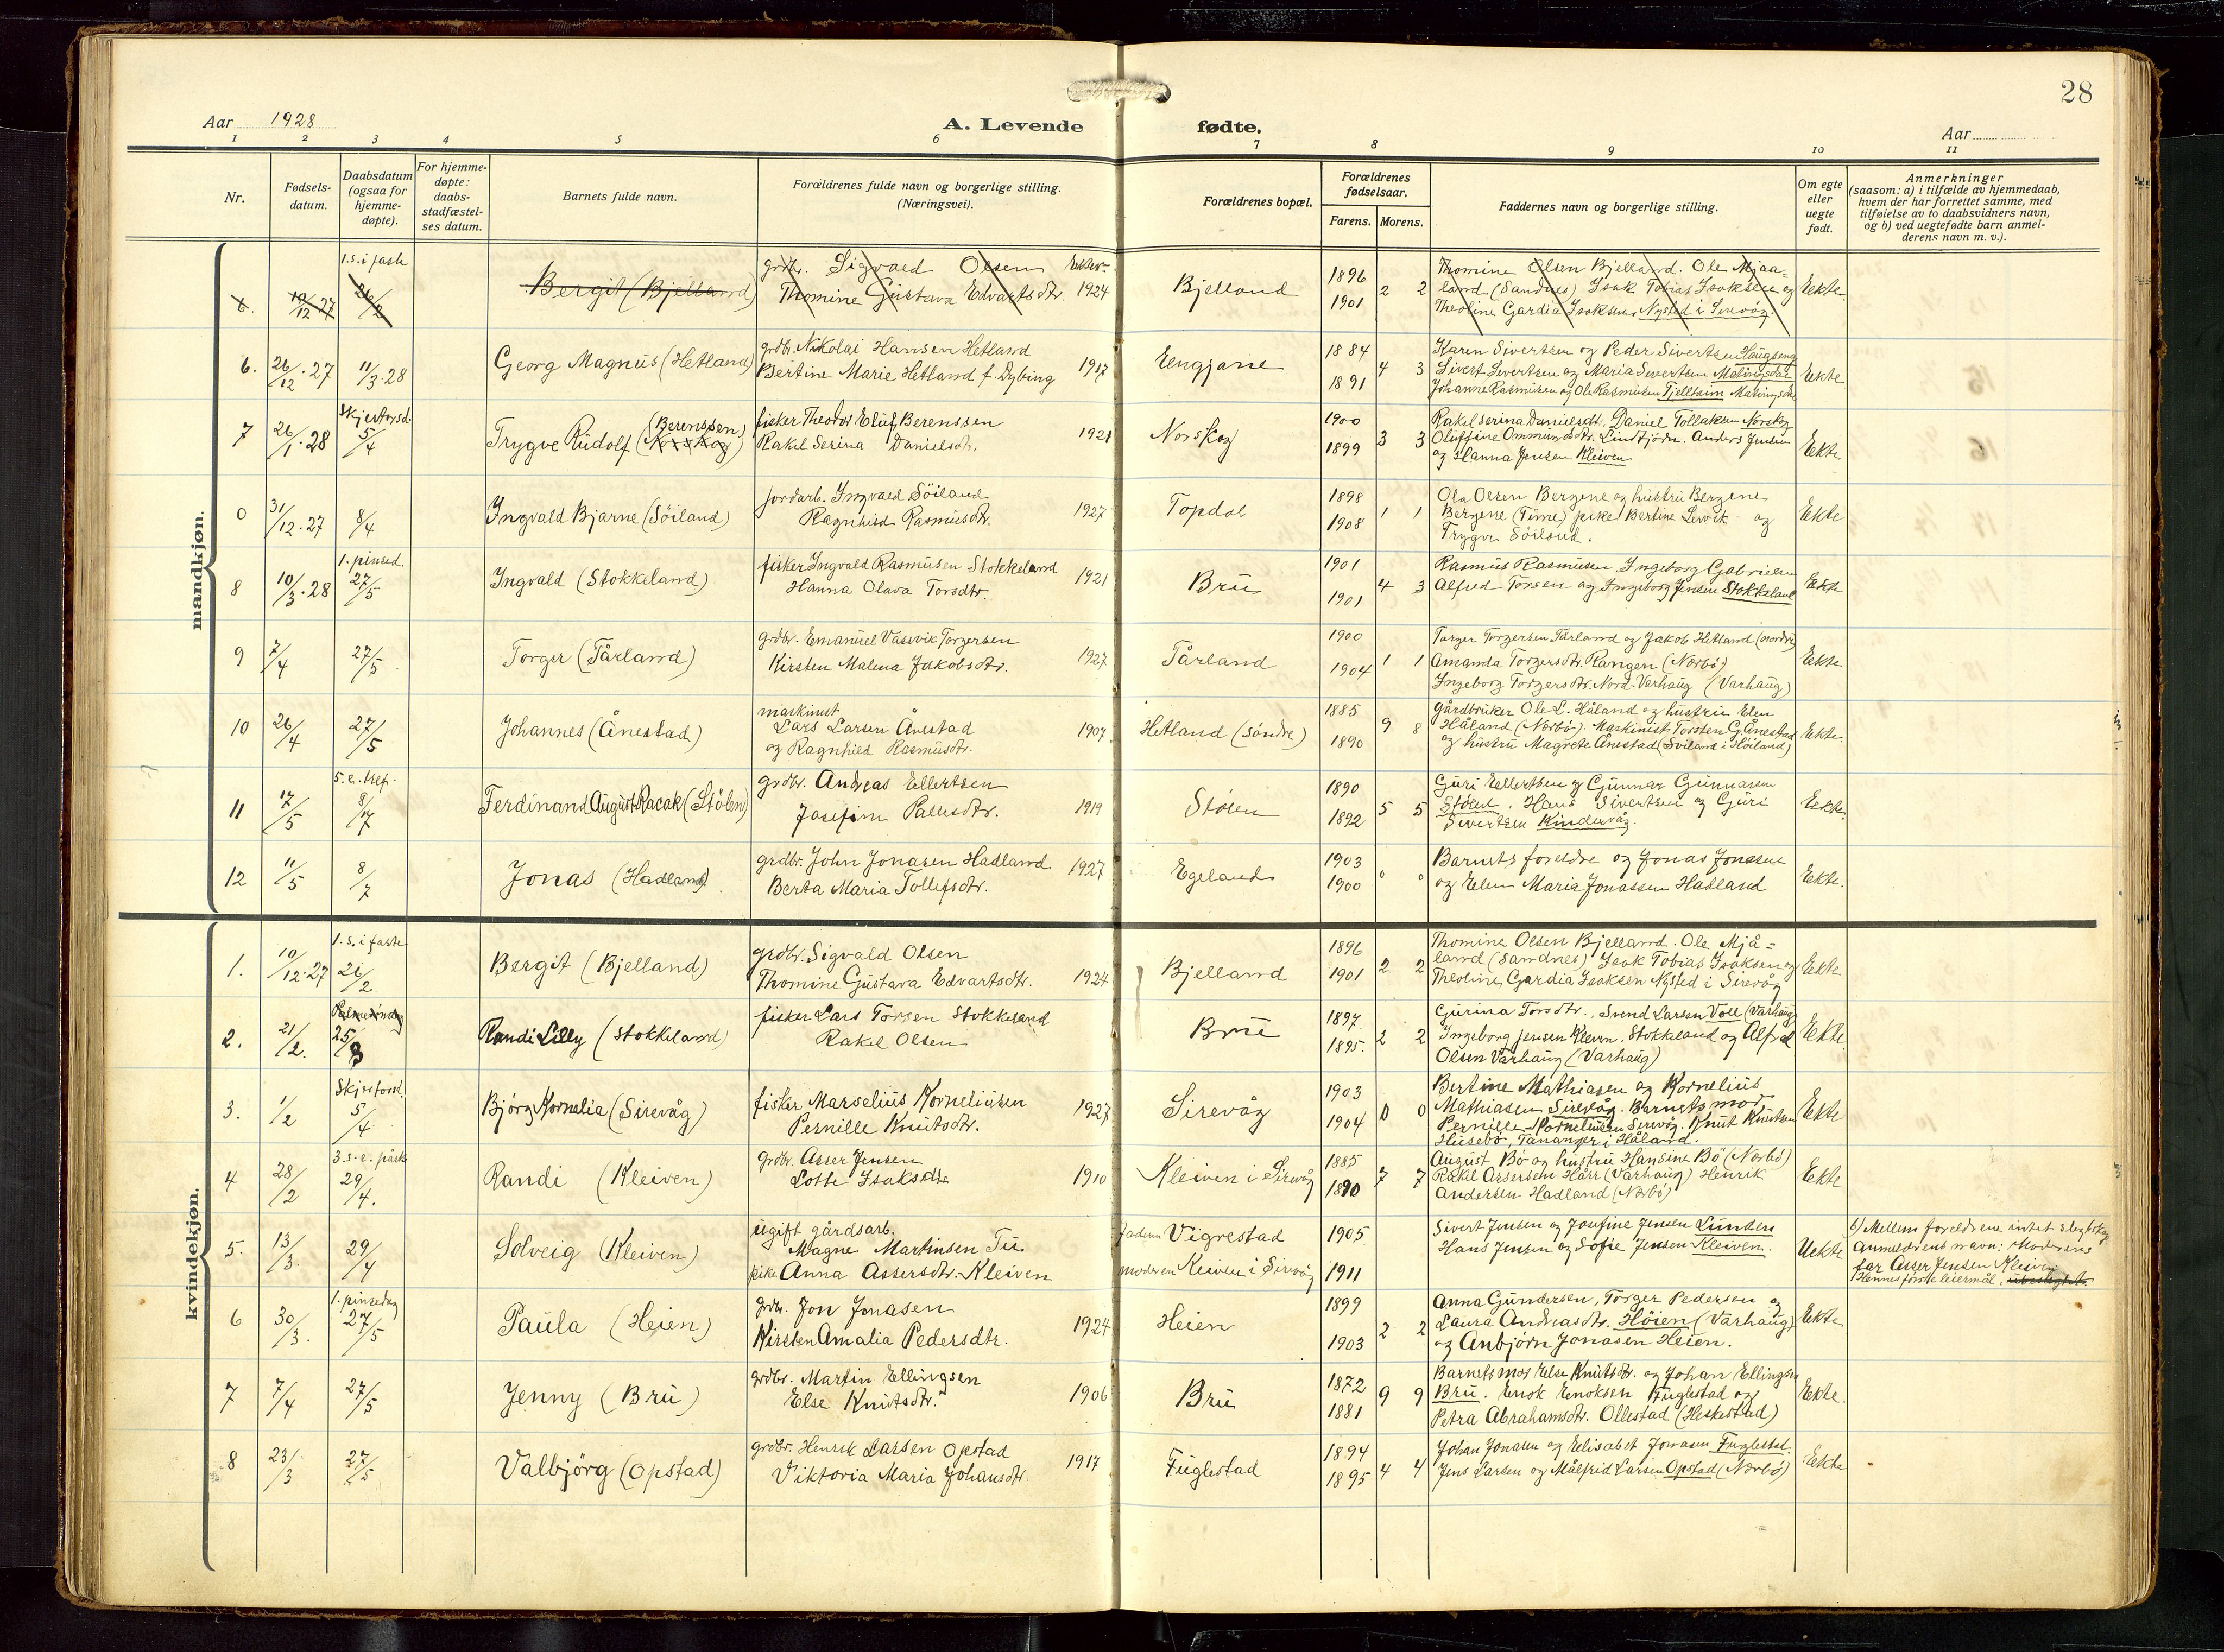 28
Aar 1928
A. Levende fødte.
Aar
1 2 3 4 5 6 7 8 9 10 11
Nr.
Fødsels-
datum.
Daabsdatum
(ogsaa for
hjemme-
døpte).
For hjemme-
døpte:
daabs-
stadfæstel-
ses datum.
Barnets fulde navn.
Forældrenes fulde navn og borgerlige stilling.
(Næringsvei).
Forældrenes bopæl.
Forældrenes
fødselsaar.
Farens. Morens.
Faddernes navn og borgerlige stilling.
Om egte
eller
uegte
født.
Anmerkninger
(saasom: a) i tilfælde av hjemmedaab,
hvem der har forrettet samme, med
tilføielse av to daabsvidners navn,
og b) ved uegtefødte barn anmel-
derens navn m. v.).
mandkjøn.
6. 10/12 27 1. s. i faste 26/2 Bergit (Bjelland)
grdbr. Sigvald Olsen
Thomine Gustava Edvartsdtr. 1924
Bjelland 1896 1901 2 2
Thomine Olsen Bjelland. Ole Mjaa-
land (Sandnes) Isak Tobias Isaksen og
Theoline Gardia Isaksen Nysted i Sirevåg.
Ekte.
6. 26/12 27 11/3 28 Georg Magnus (Hetland)
grdbr. Nikolai Hansen Hetland
Bertine Marie Hetland f. Dybing 1917
1884 1891 4 3
Karen Sivertsen og Peder Sivertsen Haugseng
Sivert Sivertsen og Maria Sivertsen Matingsdal
Johanne Rasmusen og Ole Rasmusen Tjellheim Matingsdal
Ekte
7 26/1 28 Skjertorsd. 5/4 Trygve Rudolf (Norskog) (Berenssen)
fisker Theodor Eluf Berenssen
Rakel Serina Danielsdtr. 1921
Norskog 1900 1899 3 3
Rakel Serina Danielsdt. Daniel Tollaksen Norskog
Oluffine Ommundsdtr. Lindtjørn. Anders Jensen
og Hanna Jensen Kleiven
Ekte
0 31/12 27 8/4 Ingvald Bjarne (Söiland)
jordarb. Ingvald Söiland
Ragnhild Rasmusdtr. 1927
Topdal 1898 1908 1 1
Ola Olsen Bergene og hustru Bergene
Bergene (Time) pike Bertine Lervik og
Trygve Söiland.
Ekte
8 10/3 28 1. pinsed. 27/5 Ingvald (Stokkeland)
fisker Ingvald Rasmusen Stokkeland
Hanna Olava Torsdtr. 1921
Bru 1901 1901 4 3
Rasmus Rasmusen. Ingeborg Gabrielsen
Alfred Torsen og Ingeborg Jensen Stokkeland
Ekte
9 7/4 27/5 Torger (Tårland)
grdbr. Emanuel Vassvik Torgersen
Kirsten Malena Jakobsdtr. 1927
Tårland 1900 1904 1 1
Torger Torgersen Tårland og Jakob Hetland (nordre)
Amanda Torgersdtr. Rangen (Nærbø)
Ingeborg Torgersdtr. Nord-Varhaug (Varhaug)
Ekte
10 26/4 27/5 Johannes (Ånestad)
maskinist
Lars Larsen Ånestad
og Ragnhild Rasmusdtr. 1907
Hetland (Søndre) 1885 1890 9 8
Gårdbruker Ole L. Håland og hustru Elen
Håland (Nærbø). Maskinist Torsten G. Ånestad
og hustru Magrete Ånestad (Sviland i Høiland)
Ekte.
11 17/5 5. e. tref. 8/7 Ferdinand August Racak (Stölen)
grdbr. Andreas Ellertsen
Josefine Pallesdtr. 1919
Stölen 1890 1892 5 5
Guri Ellertsen og Gunnar Gunnarsen
Stölen. Hans Sivertsen og Guri
Sivertsen Kindervåg.
Ekte.
12 11/5 8/7 Jonas (Hadland).
grdbr. John Jonasen Hadland
Berta Maria Tollefsdtr. 1927
Egeland 1903 1900 0 0
Barnets foreldre og Jonas Jonasen
og Elen Maria Jonassen Hadland
Ekte.
kvindekjøn.
1. 10/12 27 1. s. i faste 26/2 Bergit (Bjelland)
grdbr. Sigvald Olsen
Thomine Gustava Edvartsdtr. 1924
Bjelland 1896 1901 2 2
Thomine Olsen Bjelland. Ole Mjå-
land (Sandnes) Isak Tobias Isaksen og
Theoline Gardia Isaksen Nysted i Sirevåg
Ekte
2. 21/2. Palmesöndag 25/3 Randi Lilly (Stokkeland)
fisker Lars Torsen Stokkeland
Rakel Olsen
Brue 1897 1895. 2 2
Gurina Torsdtr., Svend Larsen Voll (Varhaug)
Ingeborg Jensen Kleven. Stokkeland og Alfred
Olsen Varhaug (Varhaug)
Ekte.
3. 1/2 Skjertorsd. 5/4 Bjørg Kornelia (Sirevåg)
fisker Marselius Korneliusen
Pernille Knutsdtr. 1927
Sirevåg 1903 1904 0 0
Bertine Mathiasen og Kornelius
Mathiasen Sirevåg. Barnets mor
Pernille Korneliusen Sirevåg. Knut Knutsen
Husebø, Tananger i Håland.
Ekte
4 28/2 3. s. e. påske 29/4. Randi (Kleiven)
Grdbr. Asser Jensen
Lotte Isaksdtr 1910
Kleiven i Sirevåg 1885 1890 7 7
August Bö og hustru Hansine Bö (Nærbø)
Rakel Assersen Hårr (Varhaug) Henrik
Andersen Hadland (Nærbø)
Ekte
5. 13/3. 29/4 Solveig (Kleiven)
ugift gårdsarb.
Magne Martinsen Tu
pike Anna Assersdtr. Kleiven
faderen Vigrestad
moderen Kleiven i Sirevåg
1905 1911
Sivert Jensen og Josefine Jensen Lunden
Hans Jensen og Sofie Jensen Kleiven.
Uekte
b) Mellem foreldrene intet slegtskap
Anmelderens navn: Moderens
far Asser Jensen Kleiven
Hennes første leiermål.
6 30/3. 1. pinsedag 27/5 Paula (Heien)
grdbr. Jon Jonasen
Kirsten Amalia Pedersdtr. 1924
Heien 1899 1903 2 2
Anna Gundersen, Torger Pedersen og
Laura Andreasdtr. Höien (Varhaug)
og Anbjørn Jonasen Heien.
Ekte
7 7/4 27/5 Jenny (Bru)
grdbr. Martin Ellingsen
Else Knutsdtr. 1906
Bru 1872 1881 9 9
Barnets mor Else Knutsdtr. og Johan Ellingsen
Bru. Enok Enoksen Fuglestad og
Petra Abrahamsdtr. Ollestad (Heskestad)
Ekte.
8 23/3 27/5 Valbjörg (Opstad)
grdbr. Henrik Larsen Opstad
Viktoria Maria Johansdtr. 1917
Fuglestad 1894 1895 4 4
Johan Jonasen og Elisabet Jonasen Fuglestad.
Jens Larsen og Målfrid Larsen Opstad (Nærbø)
Ekte